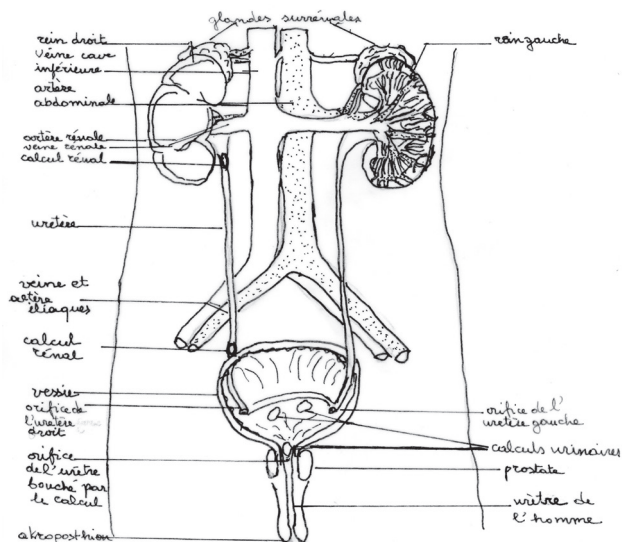 glandes surrénales
rein droit
veine cave
inférieure
artère
abdominale
artère rénale
veine rénale
calcul rénal
uretère
veine et
artère
iliaques
calcul
rénal
vessie
orifice de
l'uretère
droit
orifice
de l'urètre
bouché par
le calcul
akroposthion
rein gauche
orifice de l'
uretère gauche
calculs urinaires
prostate
urètre de
l'homme